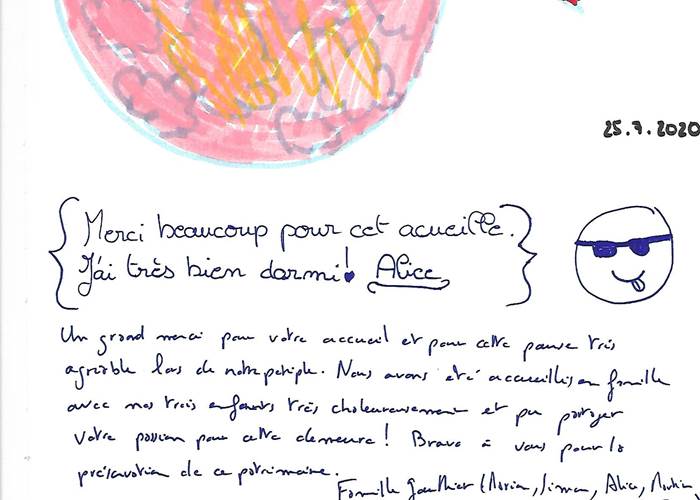 25.7.2020
Merci beaucoup pour cet acueille.
J'ai très bien dormi! Alice
Un grand merci pour votre accueil et pour cette pause très
agréable lors de notre périple. Nous avons été accueillis en famille
avec nos trois enfants très chaleureusement et pu partager
votre passion pour cette demeure ! Bravo à vous pour la
préservation de ce patrimoine.
Famille Gauthier (Marion, Simon, Alice,